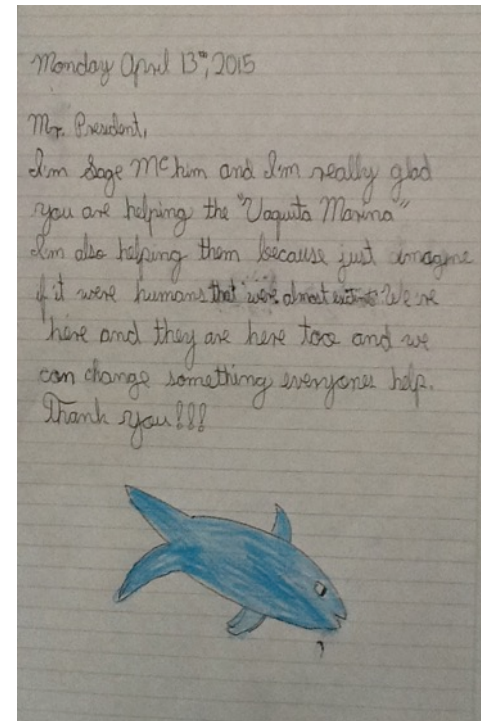 Monday April 13th, 2015
Mr. President,
I'm Sage McKim and I'm really glad
you are helping the "Vaquita Marina"
I'm also helping them because just imagine
if it were humans that were almost extinct We're
here and they are here too and we
can change something everyones help.
Thank you!!!